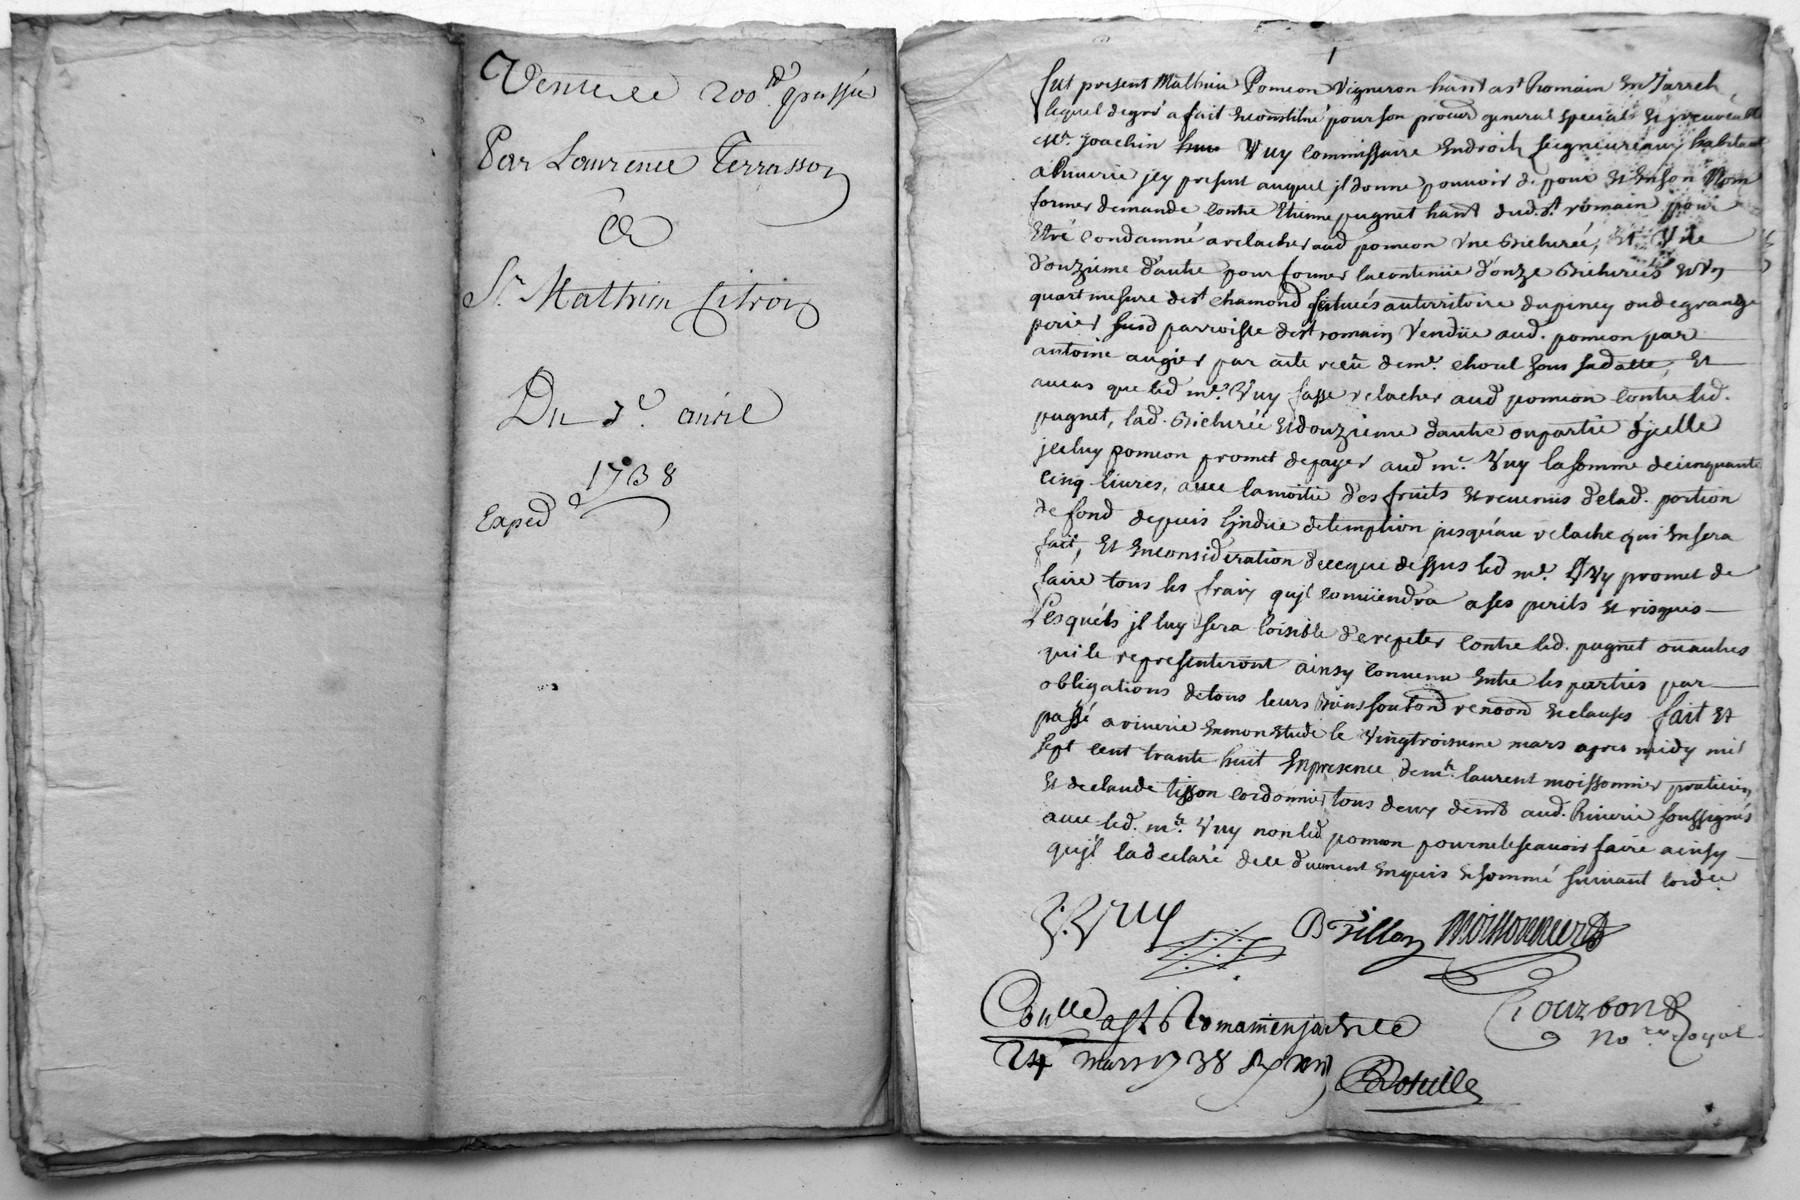 Vente de 200ᵗᵗ passée
Par Laurence Terrasson
A
Sʳ Mathieu Citron
Du 7ᵉ avril
1738
Exped
1
fut present Mathieu Pomeon Vigneron hant a sᵗ Romain En Jarrets
lequel degré a fait Et constitué pour son procur general special Et jrrevocable
Mʳ. Joachin Vuy Commissaire En droits seigneuriaux habitant
a Riverie jcy present auquel jl donne pouvoir de pour Et En son Nom
former demande contre Etienne pugnet hant dud. sᵗ romain pour
Etre condamné a relacher aud pomeon Vne Bicherée, Et Vne
douzieme d'autre pour former la contenue d'onze Bicherées Et Vn
quart mesure de sᵗ chamond situées au territoire du piney ou de grange
perier susd parroisse de sᵗ romain Vendüe aud. pomeon par
antoine augier par acte receü de mᵉ. choul sous sa datte, Et
au cas que led mᵉ. Vuy fasse relacher aud pomeon contre led.
pugnet, lad. Bicherée Et douzieme d'autre ou partie d'jcelle
jceluy pomeon promet de payer aud mᵉ. Vuy la somme de cinquante
cinq livres, avec la moitié des fruits Et revenus de lad. portion
de fond depuis l'jndue detemption jusqu'au relache qui En sera
fait, Et En consideration de ce que dessus led mᵉ. Vuy promet de
faire tous les fraix qu'jl conviendra a ses perils Et risques
Lesquels jl luy sera loisible de repeter contre led. pugnet ou autres
qui le representeront ainsy convenu Entre les parties par
obligations de tous leurs biens renond Et clauses fait Et
passé a riverie En mon Etude le Vingtroisieme mars apres midy mil
sept cent trante huit En presence de mᵉ. laurent moissonnier praticien
Et de claude tisson cordonnier tous deux demt aud. Riverie soussignés
avec led. mᵉ. Vuy non led pomeon pour ne le scavoir faire ainsy
qu'jl la declaré de ce duement Enquis Et sommé suivant lordce
J. Vuy Moissonnier
Controllé a sᵗ Romain en jarrest le
24 mars 1738
No.ʳᵉ Royal